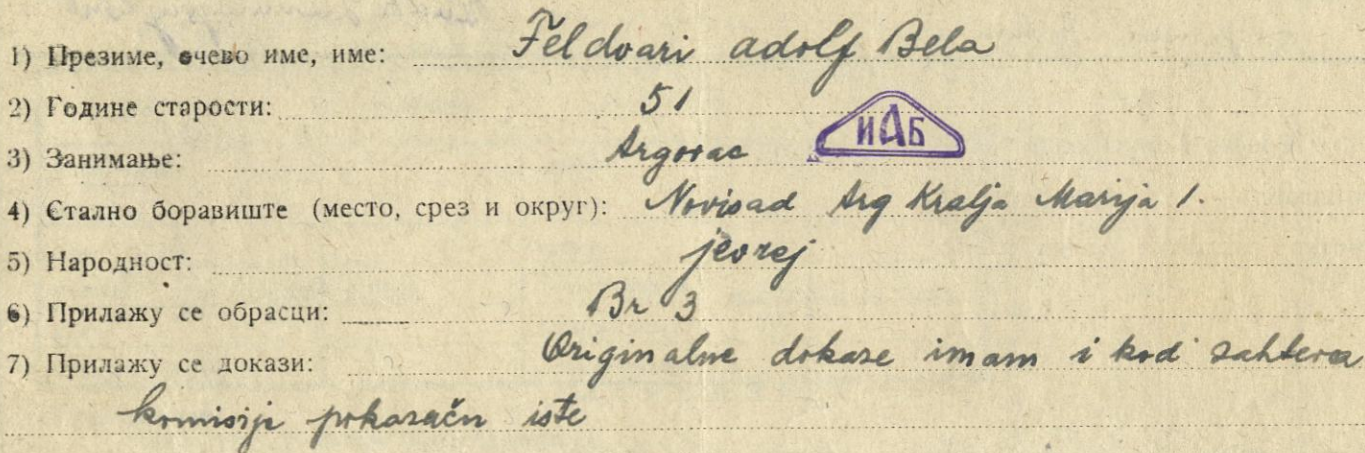 1) Презиме, очево име, име: Feldvari adolf Bela
2) Године старости: 51
3) Занимање: trgovac
ИАБ
4) Стално боравиште (место, срез и округ): Novisad trg Kralja Marija 1.
5) Народност: jevrej
6) Прилажу се обрасци: Br 3
7) Прилажу се докази: Originalne dokaze imam i kod zahteva
komisiji pokazaću iste